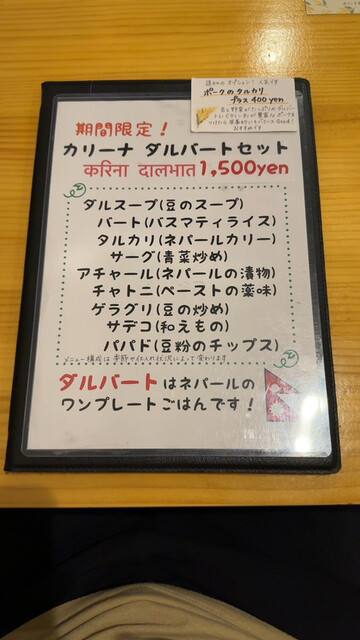 ポークのタルカリ
プラス 400yen
おすすめです
期間限定！
カリーナ ダルバートセット
करिना दालभात 1,500yen
ダルスープ(豆のスープ)
バート(バスマティライス)
タルカリ(ネパールカリー)
サーグ(青菜炒め)
アチャール(ネパールの漬物)
チャトニ(ペーストの薬味)
ゲラグリ(豆の炒め)
サデコ(和えもの)
パパド(豆粉のチップス)
メニュー構成は季節や仕入れ状況によって変わります
ダルバートはネパールの
ワンプレートごはんです！